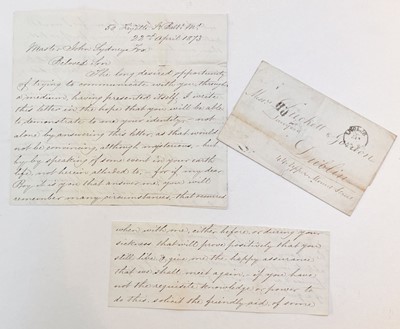 22nd April 1873
Master John Sydney Fox
Beloved Son
The long desired opportunity
of trying to communicate with you through
a medium, having presented itself, I write
this letter in the hope that you will be able
to demonstrate to me your identity, not
alone by answering this letter, as that would
not be convincing, although mysterious, but
by speaking of some event in your earth
life, not herein alluded to, for if my dear
Boy it is you that answers me, you will
remember many circumstances, that
Dublin
Upper Mount Street
when with me, either before or during your
sickness that will prove positively that you
still live & give me the happy assurance
that we shall meet again. if you have
not the requisite knowledge or power to
do this, solicit the friendly aid of some